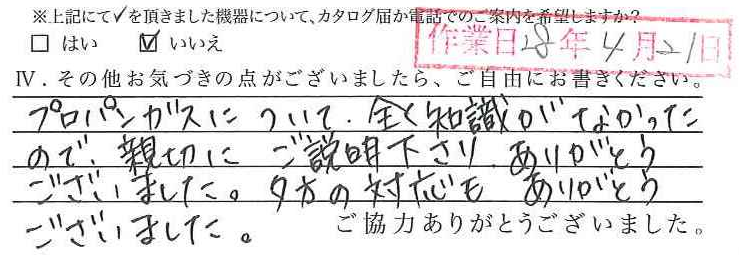 ※上記にて✓を頂きました機器について、カタログ届か電話でのご案内を希望しますか?
□ はい ☑ いいえ
作業日28年4月21日
Ⅳ．その他お気づきの点がございましたら、ご自由にお書きください。
プロパンガスについて、全く知識がなかった
ので、親切にご説明下さり、ありがとう
ございました。夕方の対応もありがとう
ございました。
ご協力ありがとうございました。